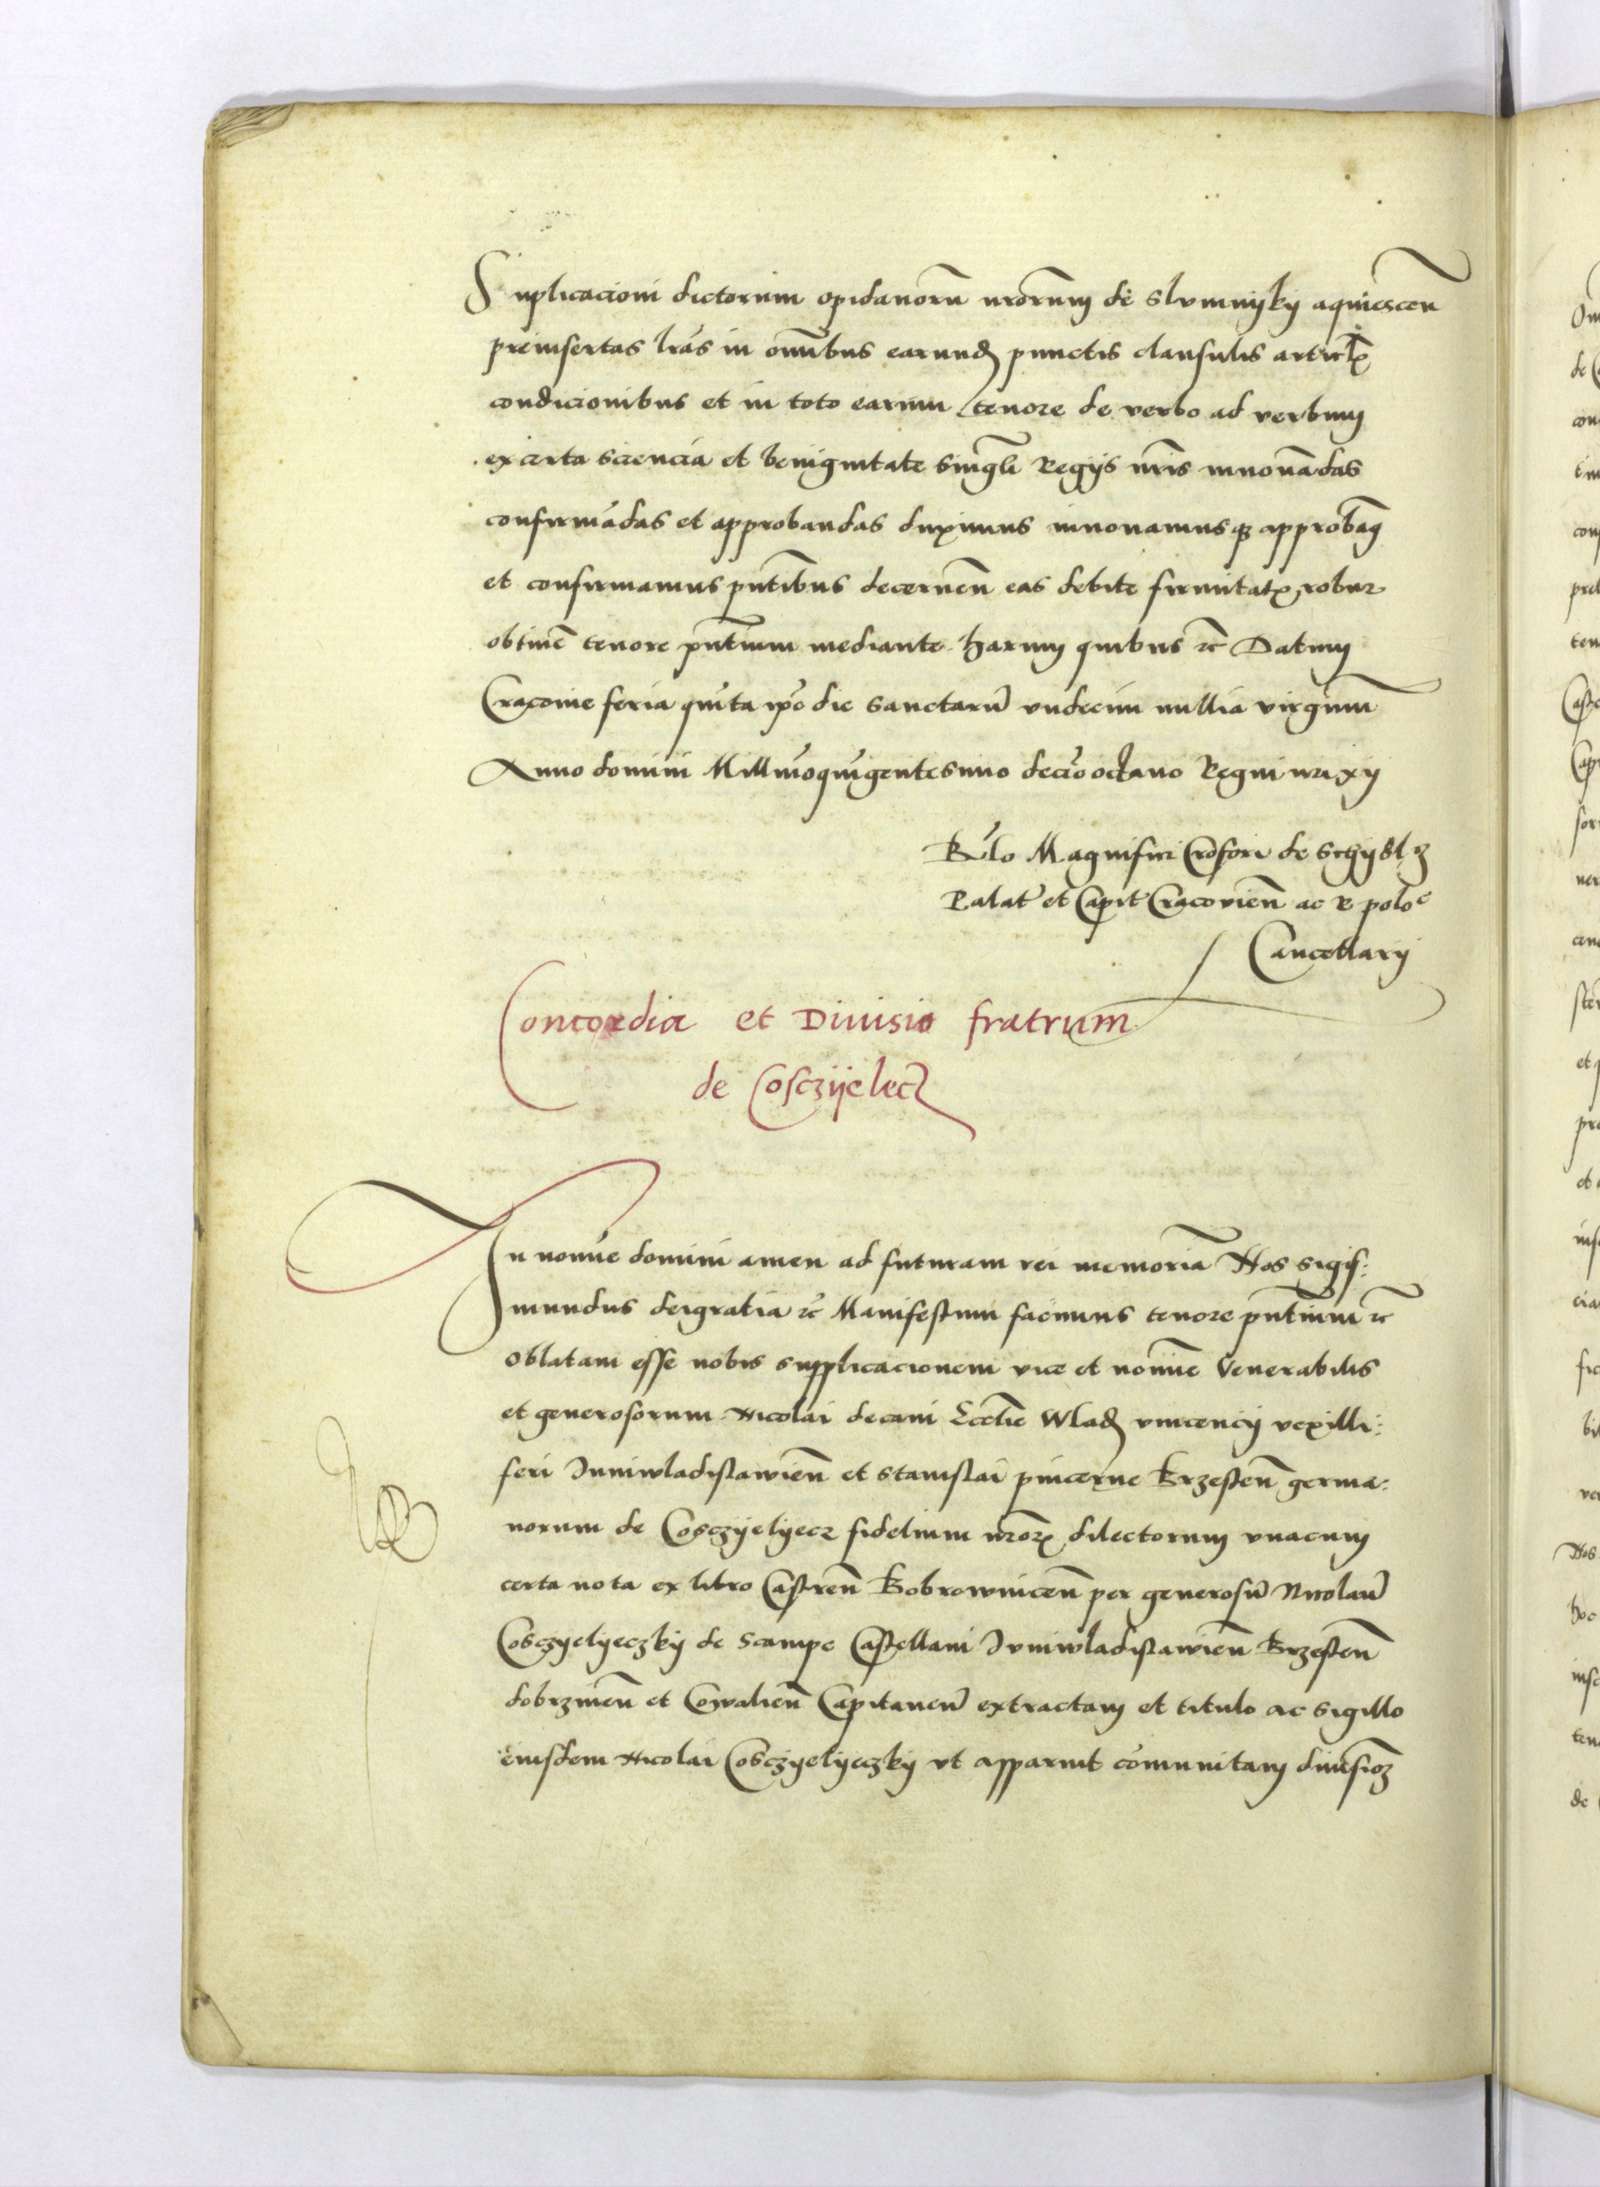 Suplicacioni dictorum opidanorū nrōrum de Slomnijky aquiescen̄
preinsertas lrās in om̄ibus earund punctis clausulis articlꝭ
condicionibus et in toto earum tenore de verbo ad verbum
ex certa sciencia et benignitate singlī Regijs nrīs innouādas
confirmādas et approbandas duximus innouamusqꝫ approbam̄9
et confirmamus pn̄tibus decernen̄ eas debite firmitatꝭ robur
obtinē tenore pn̄tium mediante harum quibus ꝛc̄ Datum
Cracouie feria quīta ipō die sanctarū vndecim millia virginū
Anno domini Millīoquīgentesimo decīooctauo Regni nrī xij
Rlō Magnifici Crōfori de Schijdl
Palat̄ et Capit̄ Cracouien̄ ac R poloe
Cancellarij
Concordia et Diuisio fratrum
de Cosczijelecz
In nomīe domini amen ad futuram rei memoriā Nos Sigis:
mundus dei gratia ꝛc̄ Manifestum facimus tenore pn̄tium ꝛc̄
oblatam esse nobis supplicacionem vice et nomīe Venerabilis
et generosorum Nicolai decani Ecclīe Wlad vincencij vexilli:
feri Juniwladislawien̄ et Stanislai pincerne Brzesten̄ germa:
norum de Cosczyelyecz fidelium nrōrꝭ dilectorum vnacum
certa nota ex libro Castren̄ Bobrownicen̄ per generosū Nicolaū
Cosczyelyeczky de Scampe Castellani Juniwladislawien̄ Brzesten̄
dobrzinen̄ et Cowalien̄ Capitaneū extractam et titulo ac sigillo
eiusdem Nicolai Cosczyelyeczky vt apparuit cōmunitam diuisioꝫ